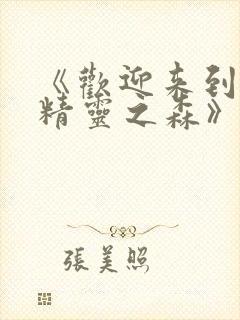 《歡迎来到
精靈之森》
張美照